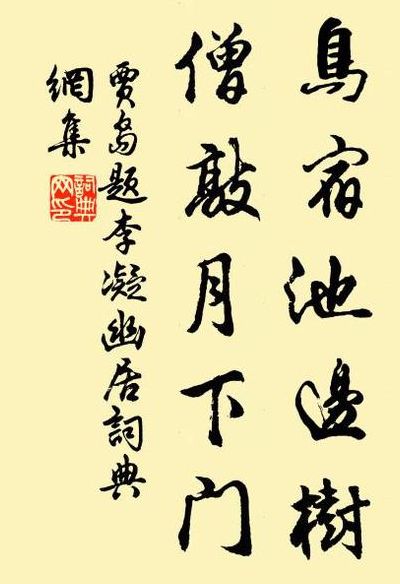 鳥宿池邊樹
僧敲月下門
賈島題李凝幽居詞典
網集
詞典
网印